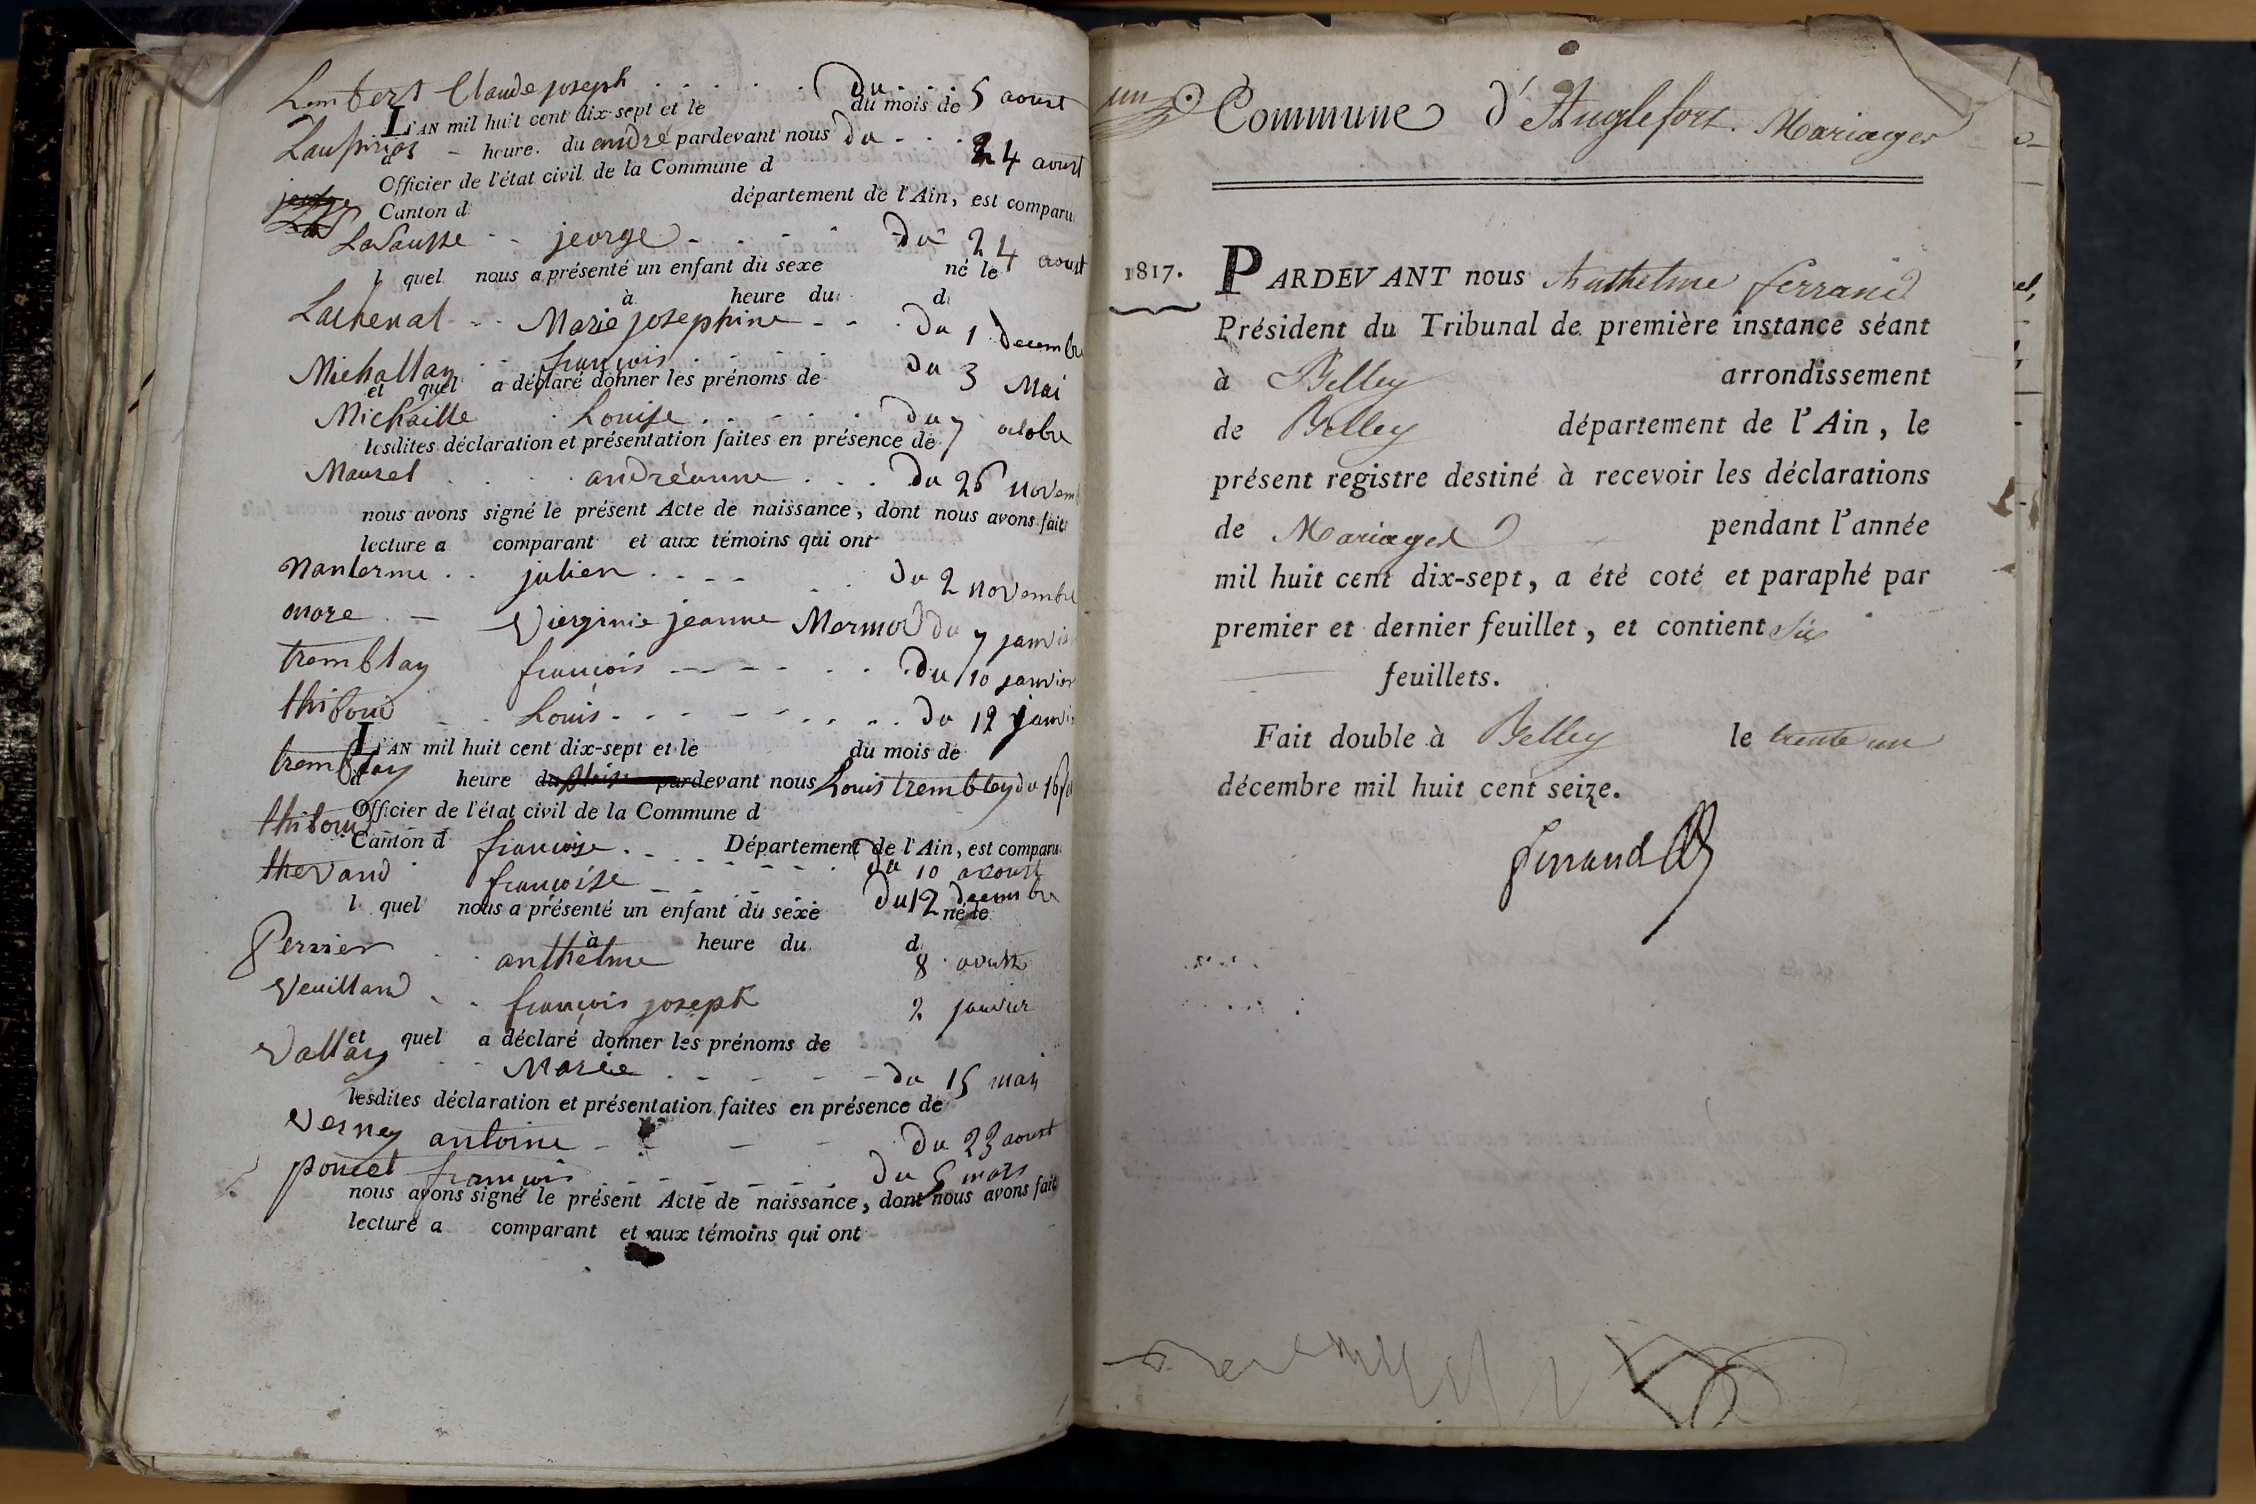 Lambert Claude joseph . . . . . Du . . . 5 aoust
L'AN mil huit cent dix-sept et le du mois de
heure du andré pardevant nous du . . . 24 aoust
Officier de l'état civil de la Commune d
Canton d département de l'Ain, est comparu
LaSausse - - jeorge - - - - - du 24 aoust
l quel nous a présenté un enfant du sexe né le
à heure du d
Lachenal - - Marie josephine - - . Du 1 decembre
Michallay - - françois . - - - - du 3 Mai
et quel a déclaré donner les prénoms de
Michaille . Louise . . - - . . du 7 octobre
lesdites déclaration et présentation faites en présence de
Manset . . . . andréanne . . . Du 26 novem
nous avons signé le présent Acte de naissance, dont nous avons fait
lecture a comparant et aux témoins qui ont
Nanterme . . julien . . - - . . Du 2 novembre
more . - Vierginie jeanne Mermod du 7 janvi
tremblay françois - - - - - . . Du 10 janvier
thiboud - - Louis . - - - - - . . . du 12 janvi
L'AN mil huit cent dix-sept et le du mois de
tremblay à heure du pardevant nous Louis tremblay du 16
Officier de l'état civil de la Commune d
thiboud Canton d françoise . Département de l'Ain, est comparu
du 10 aoust
thevand françoise - - - - - Du 12 decembre
l quel nous a présenté un enfant du sexe né le
à heure du d
Perrier . . anthelme 8 . aoust
Veuilland - - françois joseph 2 janvier
et quel a déclaré donner les prénoms de
Vallay - - Marie . - - - - du 15 mai
lesdites déclaration et présentation faites en présence de
Verney antoine - - - - Du 23 aoust
poncet françois . - - - - - . Du 5 mars
nous avons signé le présent Acte de naissance, dont nous avons fait
lecture a comparant et aux témoins qui ont
un
Commune d'Anglefort. Mariages
1817.
PARDEVANT nous Anthelme ferrand
Président du Tribunal de première instance séant
à Belley arrondissement
de Belley département de l'Ain, le
présent registre destiné à recevoir les déclarations
de Mariages pendant l'année
mil huit cent dix-sept, a été coté et paraphé par
premier et dernier feuillet, et contient six
feuillets.
Fait double à Belley le trente un
décembre mil huit cent seize.
ferrand